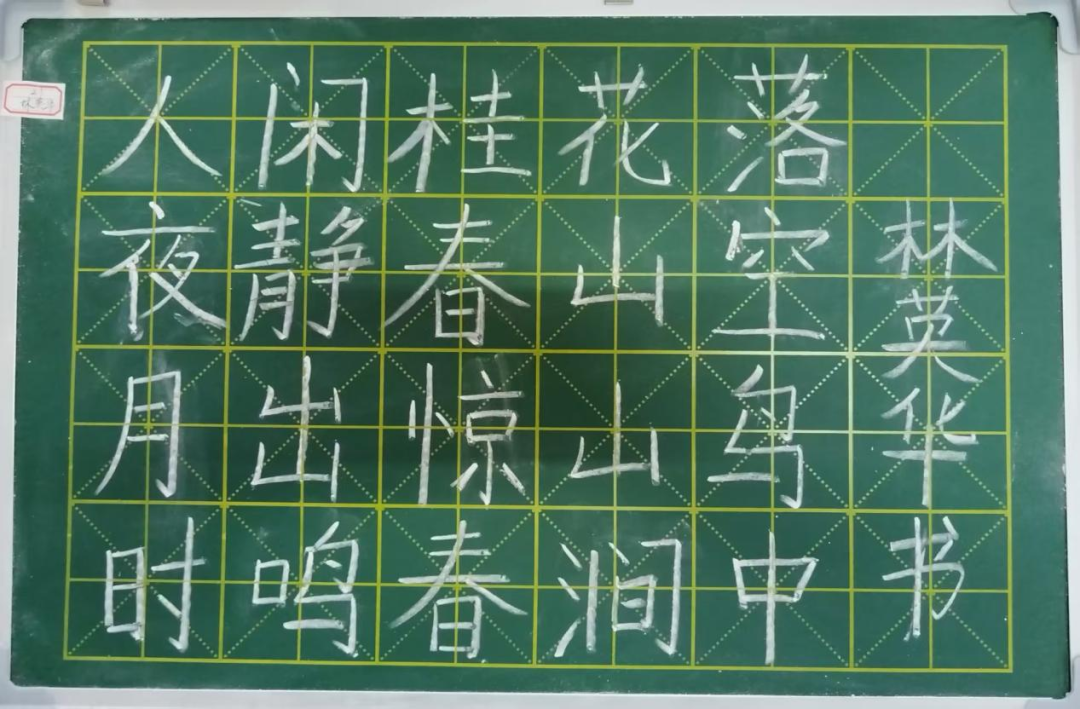 人闲桂花落
夜静春山空
月出惊山鸟
时鸣春涧中
林英华书